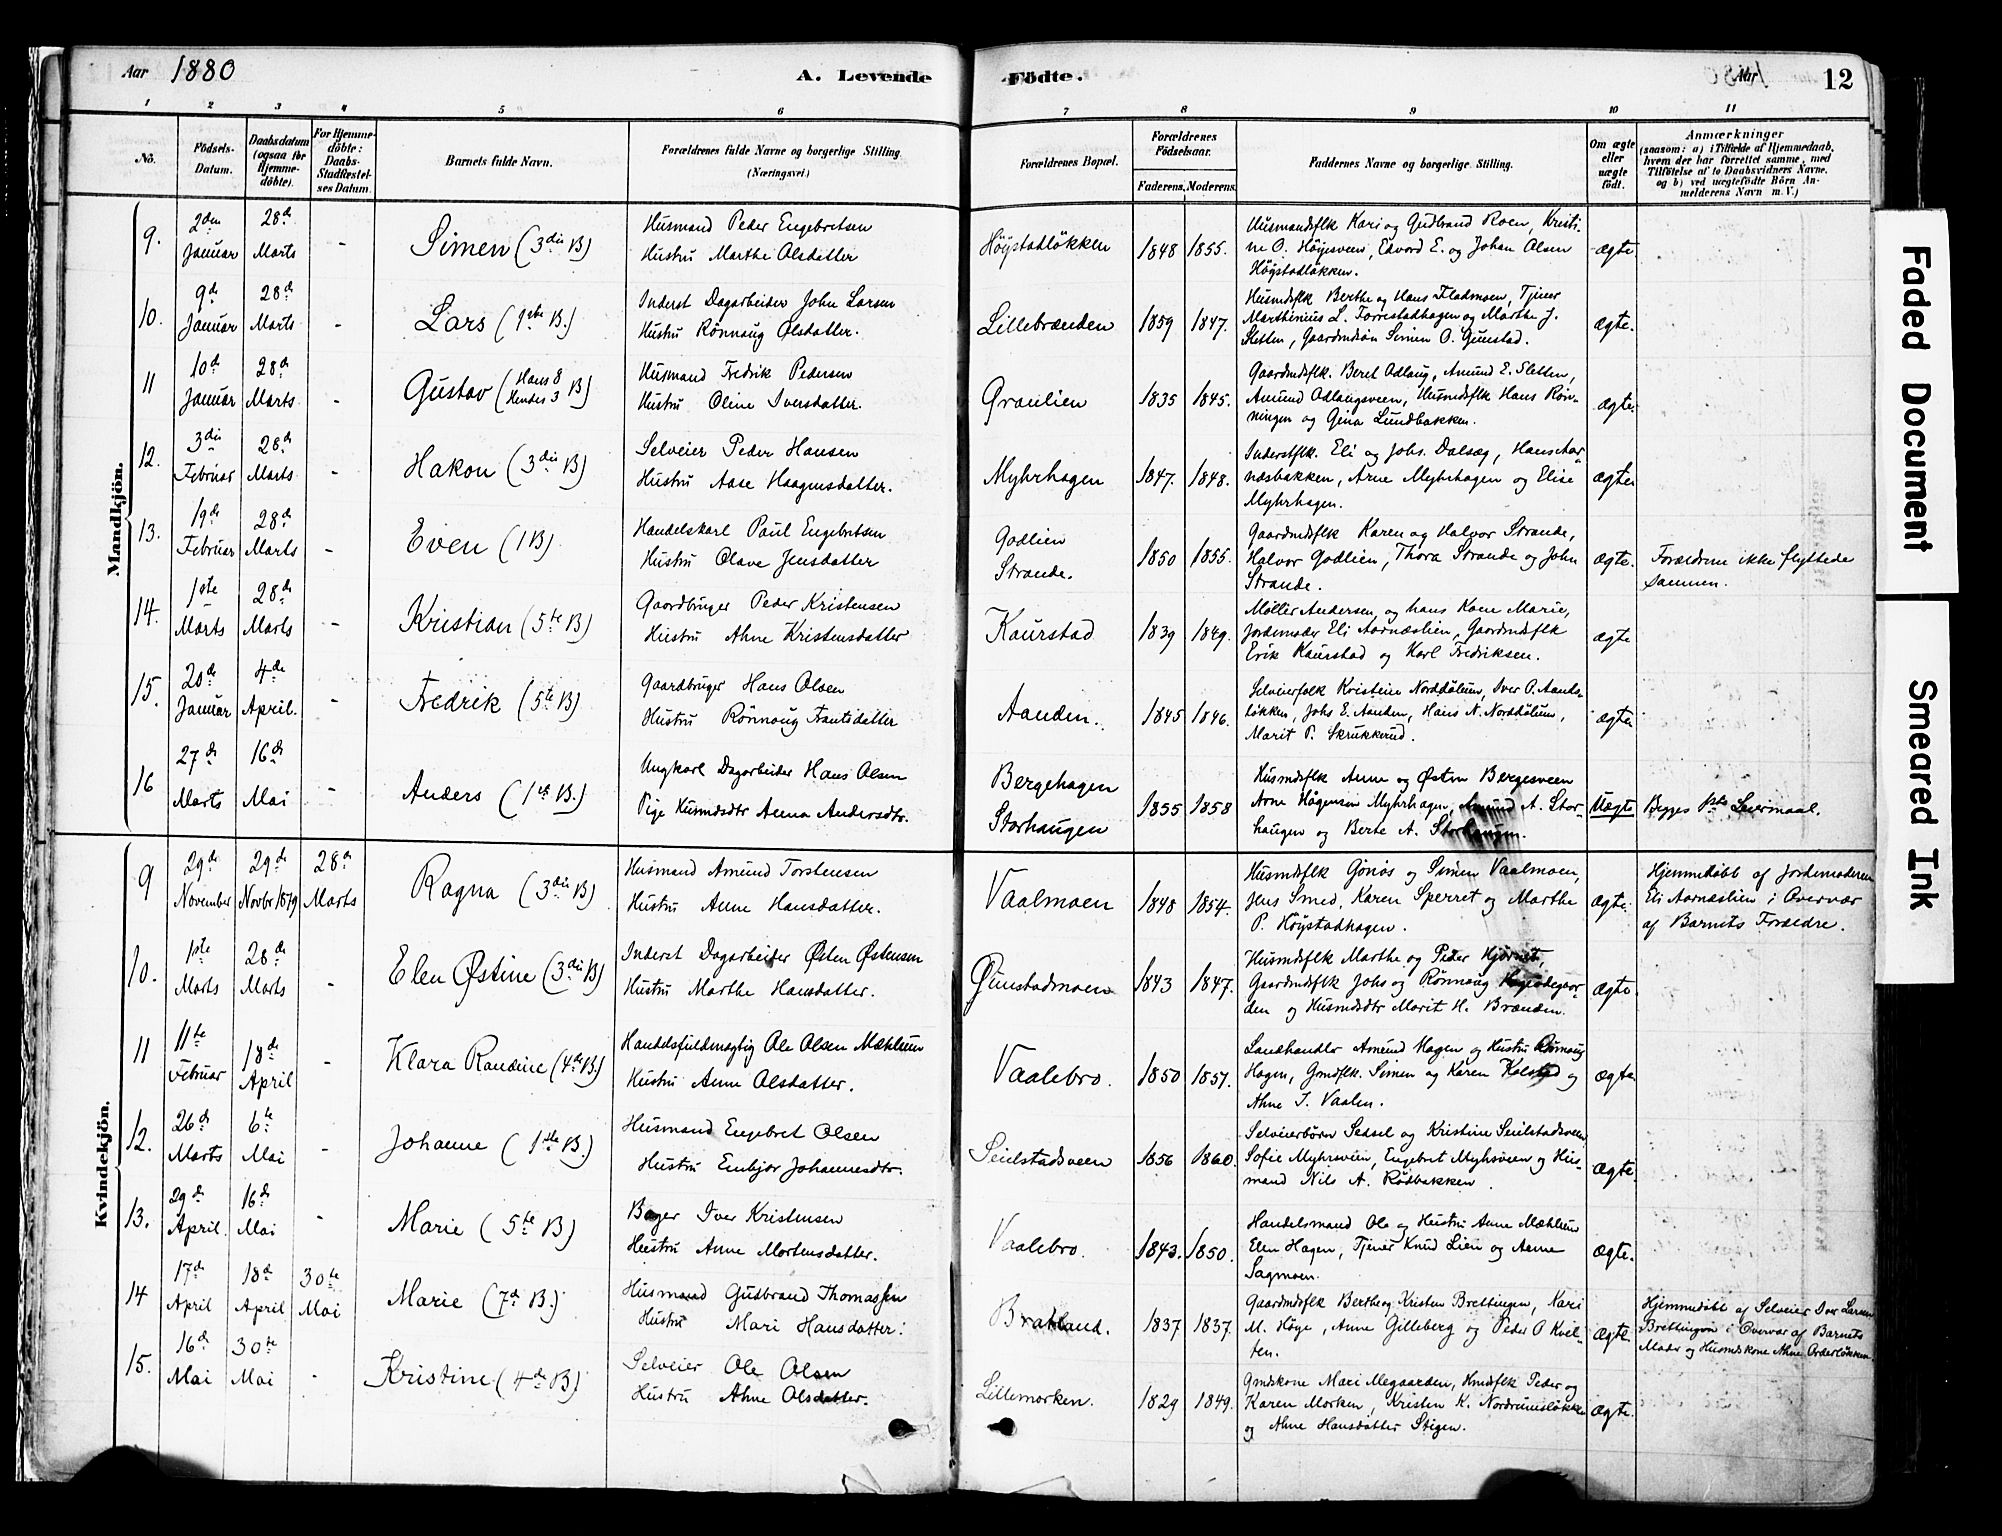 Aar 1880
A. Levende
Födte.
Aar
12
1 2 3 4 5 6 7 8 9 10 11
No.
Födsels-Datum.
Daabsdatum (ogsaa for Hjemme-döbte).
For Hjemme-döbte: Daabs-Stadfæstel-ses Datum.
Barnets fulde Navn.
Forældrenes fulde Navne og borgerlige Stilling (Næringsvei.)
Forældrenes Bopæl.
Forældrenes Födselsaar.
Faderens. Moderens.
Faddernes Navne og borgerlige Stilling.
Om ægte eller uægte födt.
Anmærkninger
(saasom: a) i Tilfælde af Hjemmedaab,
hvem der har forrettet samme, med
Tilföielse af to Daabsvidners Navne,
og b) ved uægtefödte Börn An-
melderens Navn m. V.)
Mandkjön.
9. 2den Januar 28de Marts - Simen (3die B)
Husmand Peder Engebretsen
Hustru Marthe Olsdatter
Höystadlökken 1848 1855.
Husmandsflk Kari og Gudbrand Roen, Kristi-
ne O. Höyesveen, Edvard E. og Johan Olsen
Höystadlökken.
ægte
10. 9de Januar 28de Marts - Lars (1ste B.)
Inderst Dagarbeider John Larsen
Hustru Rönnaug Olsdatter.
Lillebrænden 1859 1847.
Husmdsflk Berthe og Hans Fladmoen, Tjener
Marthinius L. Forrestadhagen og Marthe J.
Sletten, Gaardmdsön Simen O. Gunstad.
ægte.
11 10de Januar 28de Marts - Gustav (Hans 8 Hendes 3 B)
Husmand Fredrik Pedersen
Hustru Oline Iversdatter.
Graulien 1835 1845.
Gaardmdsflk. Beret Odlaug, Amund E. Sletten,
Amund Odlaugsveen, Husmdsflk Hans Rön-
ningen og Gina Lundbakken.
ægte.
12. 3die Februar 28de Marts - Hakon (3die B)
Selveier Peder Hansen
Hustru Aase Haagensdatter.
Myhrhagen 1847. 1848.
Inderstflk. Eli og Johs. Dalseg, Hans Aar-
næsbakken, Arne Myhrhagen og Elise
Myhrhagen.
ægte
13. 19de Februar 28de Marts - Even (1 B)
Handelskarl Paul Engebretsen
Hustru Olave Jensdatter
Godlien
Strande.
1850 1855.
Gaardmdsflk Karen og Halvor Strande,
Halvor Godlien, Thora Strande og John
Strande.
ægte.
Forældrene ikke flyttede
sammen.
14. 1ste Marts 28de Marts - Kristian (5te B)
Gaardbruger Peder Kristensen
Hustru Ahne Kristensdatter
Kaurstad 1839 1849.
Möller Andersen, og hans Kone Marie,
Jordemoder Eli Aarnæslien, Gaardmdsflk
Erik Kaurstad og Karl Fredriksen.
ægte
15. 20de Januar 4de April. - Fredrik (5te B)
Gaardbruger Hans Olsen
Hustru Rönnaug Frantsdatter
Aanden. 1845 1846.
Selveierfolk Kristine Norddölum, Iver O. Aands-
lökken, Johs E. Aanden, Hans N. Norddölum,
Marit P. Skrukkerud.
ægte
16 27de Marts 16de Mai - Anders (1ste B.)
Ungkarl Dagarbeider Hans Olsen
Pige Husmdsdtr Anna Andersdtr.
Bergehagen
Storhaugen
1855 1858
Husmdsflk Anne og Østen Bergesveen
Arne Hågensen Myhrhagen, Amund A. Stor-
haugen og Berte A. Storhaugen.
Uægte
Begges 1ste Leiermaal.
Kvindekjön.
9 29de November 29de Novbr 1879 28de Marts Ragna (3die B)
Husmand Amund Torstensen
Hustru Anne Hansdatter.
Vaalmoen 1848 1854.
Husmdsflk Gönos og Simen Vaalmoen,
Jens Smed, Karen Sperret og Marthe
P. Höystadhagen.
ægte.
Hjemmedöbt af Jordemoderen
Eli Aarnæslien i Overvær
af Barnets Forældre.
10. 1ste Marts 28de Marts - Elen Østine (3die B)
Inderst Dagarbeider Østen Østensen
Hustru Marthe Hansdatter.
Gunstadmoen 1843 1847.
Husmdsflk Marthe og Peder Kjörnet,
Gaardmdsflk Johs og Rönnaug
den og Husmdsdtr Marit H. Brænden.
ægte
11 11te Februar 18de April - Klara Randine (4de B.)
Handelsfuldmægtig Ole Olsen Mæhlum
Hustru Anne Olsdatter.
Vaalebro. 1850 1857.
Landhandler Amund Hagen og Hustru Rönnaug
Hagen, Gmdflk. Simen og Karen Kolstad og
Ahne I. Vaalen.
ægte
12. 26de Marts 6te Mai - Johanne (1ste B.)
Husmand Engebret Olsen
Hustru Embjør Johannesdtr.
Seielstadsveen 1856 1860.
Selveierbörn Sedsel og Kristine Seielstadsveen
Sofie Myhrsveen, Engebret Myhsveen og Hus-
mand Nils A. Rödbakken.
ægte
13. 29de April. 16de Mai - Marie (5te B)
Bager Iver Kristensen
Hustru Anne Mortensdatter.
Vaalebro. 1843. 1850.
Handelsmand Ole og Hustru Anne Mæhlum
Elen Hagen, Tjener Knud Lien og Anne
Sagmoen.
ægte.
14 17de April 18de April 30te Mai Marie (7de B.)
Husmand Gudbrand Thomassen
Hustru Mari Hansdatter.
Bratland. 1837 1837.
Gaardmdsflk Berthe og Kristen Brettingen, Kari
M. Höge, Anne Gilleberg og Peder O Kvil-
ten.
ægte
Hjemmedöbt af Selveier Iver Larsen
Brettingen i Overvær af Barnets
Moder og Husmdskone Ahne Orderlökken.
15. 16de Mai 30te Mai - Kristine (4de B)
Selveier Ole Olsen
Hustru Ahne Olsdatter.
Lillemorken. 1829 1849.
Gmdskone Mari Megaarden, Hmdflk Peder og
Karen Morken, Kristen K. Nordrumslökken
og Ahne Hansdatter Stigen.
ægte.
Faded Document
Smeared Ink